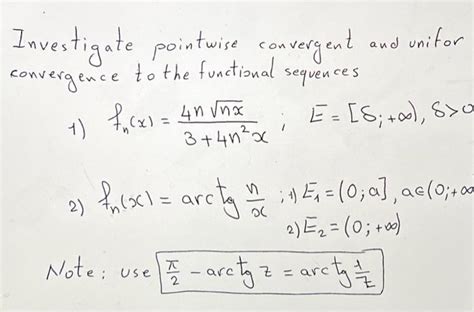 Investigate pointwise convergent and unifor
convergence to the functional sequences
1) fn(x) = 4n√nx / 3+4n²x ; E = [δ; +∞), δ>0
2) fn(x) = arctg n/x ; 1) E₁ = (0; a], a∈(0; +∞
2) E₂ = (0; +∞)
Note: use π/2 - arctg z = arctg 1/z